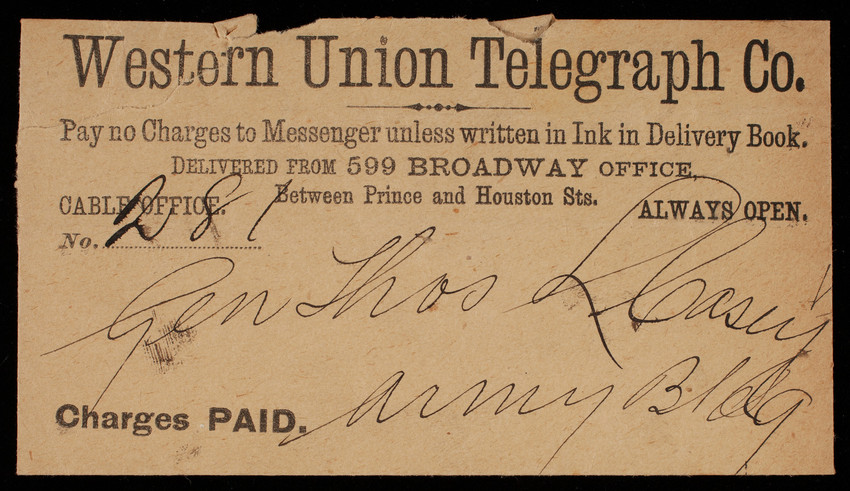 Western Union Telegraph Co.
Pay no Charges to Messenger unless written in Ink in Delivery Book.
DELIVERED FROM 599 BROADWAY OFFICE,
Between Prince and Houston Sts.
CABLE OFFICE.
ALWAYS OPEN.
No. 281
Gen Thos L Casey
Army Bldg
Charges PAID.